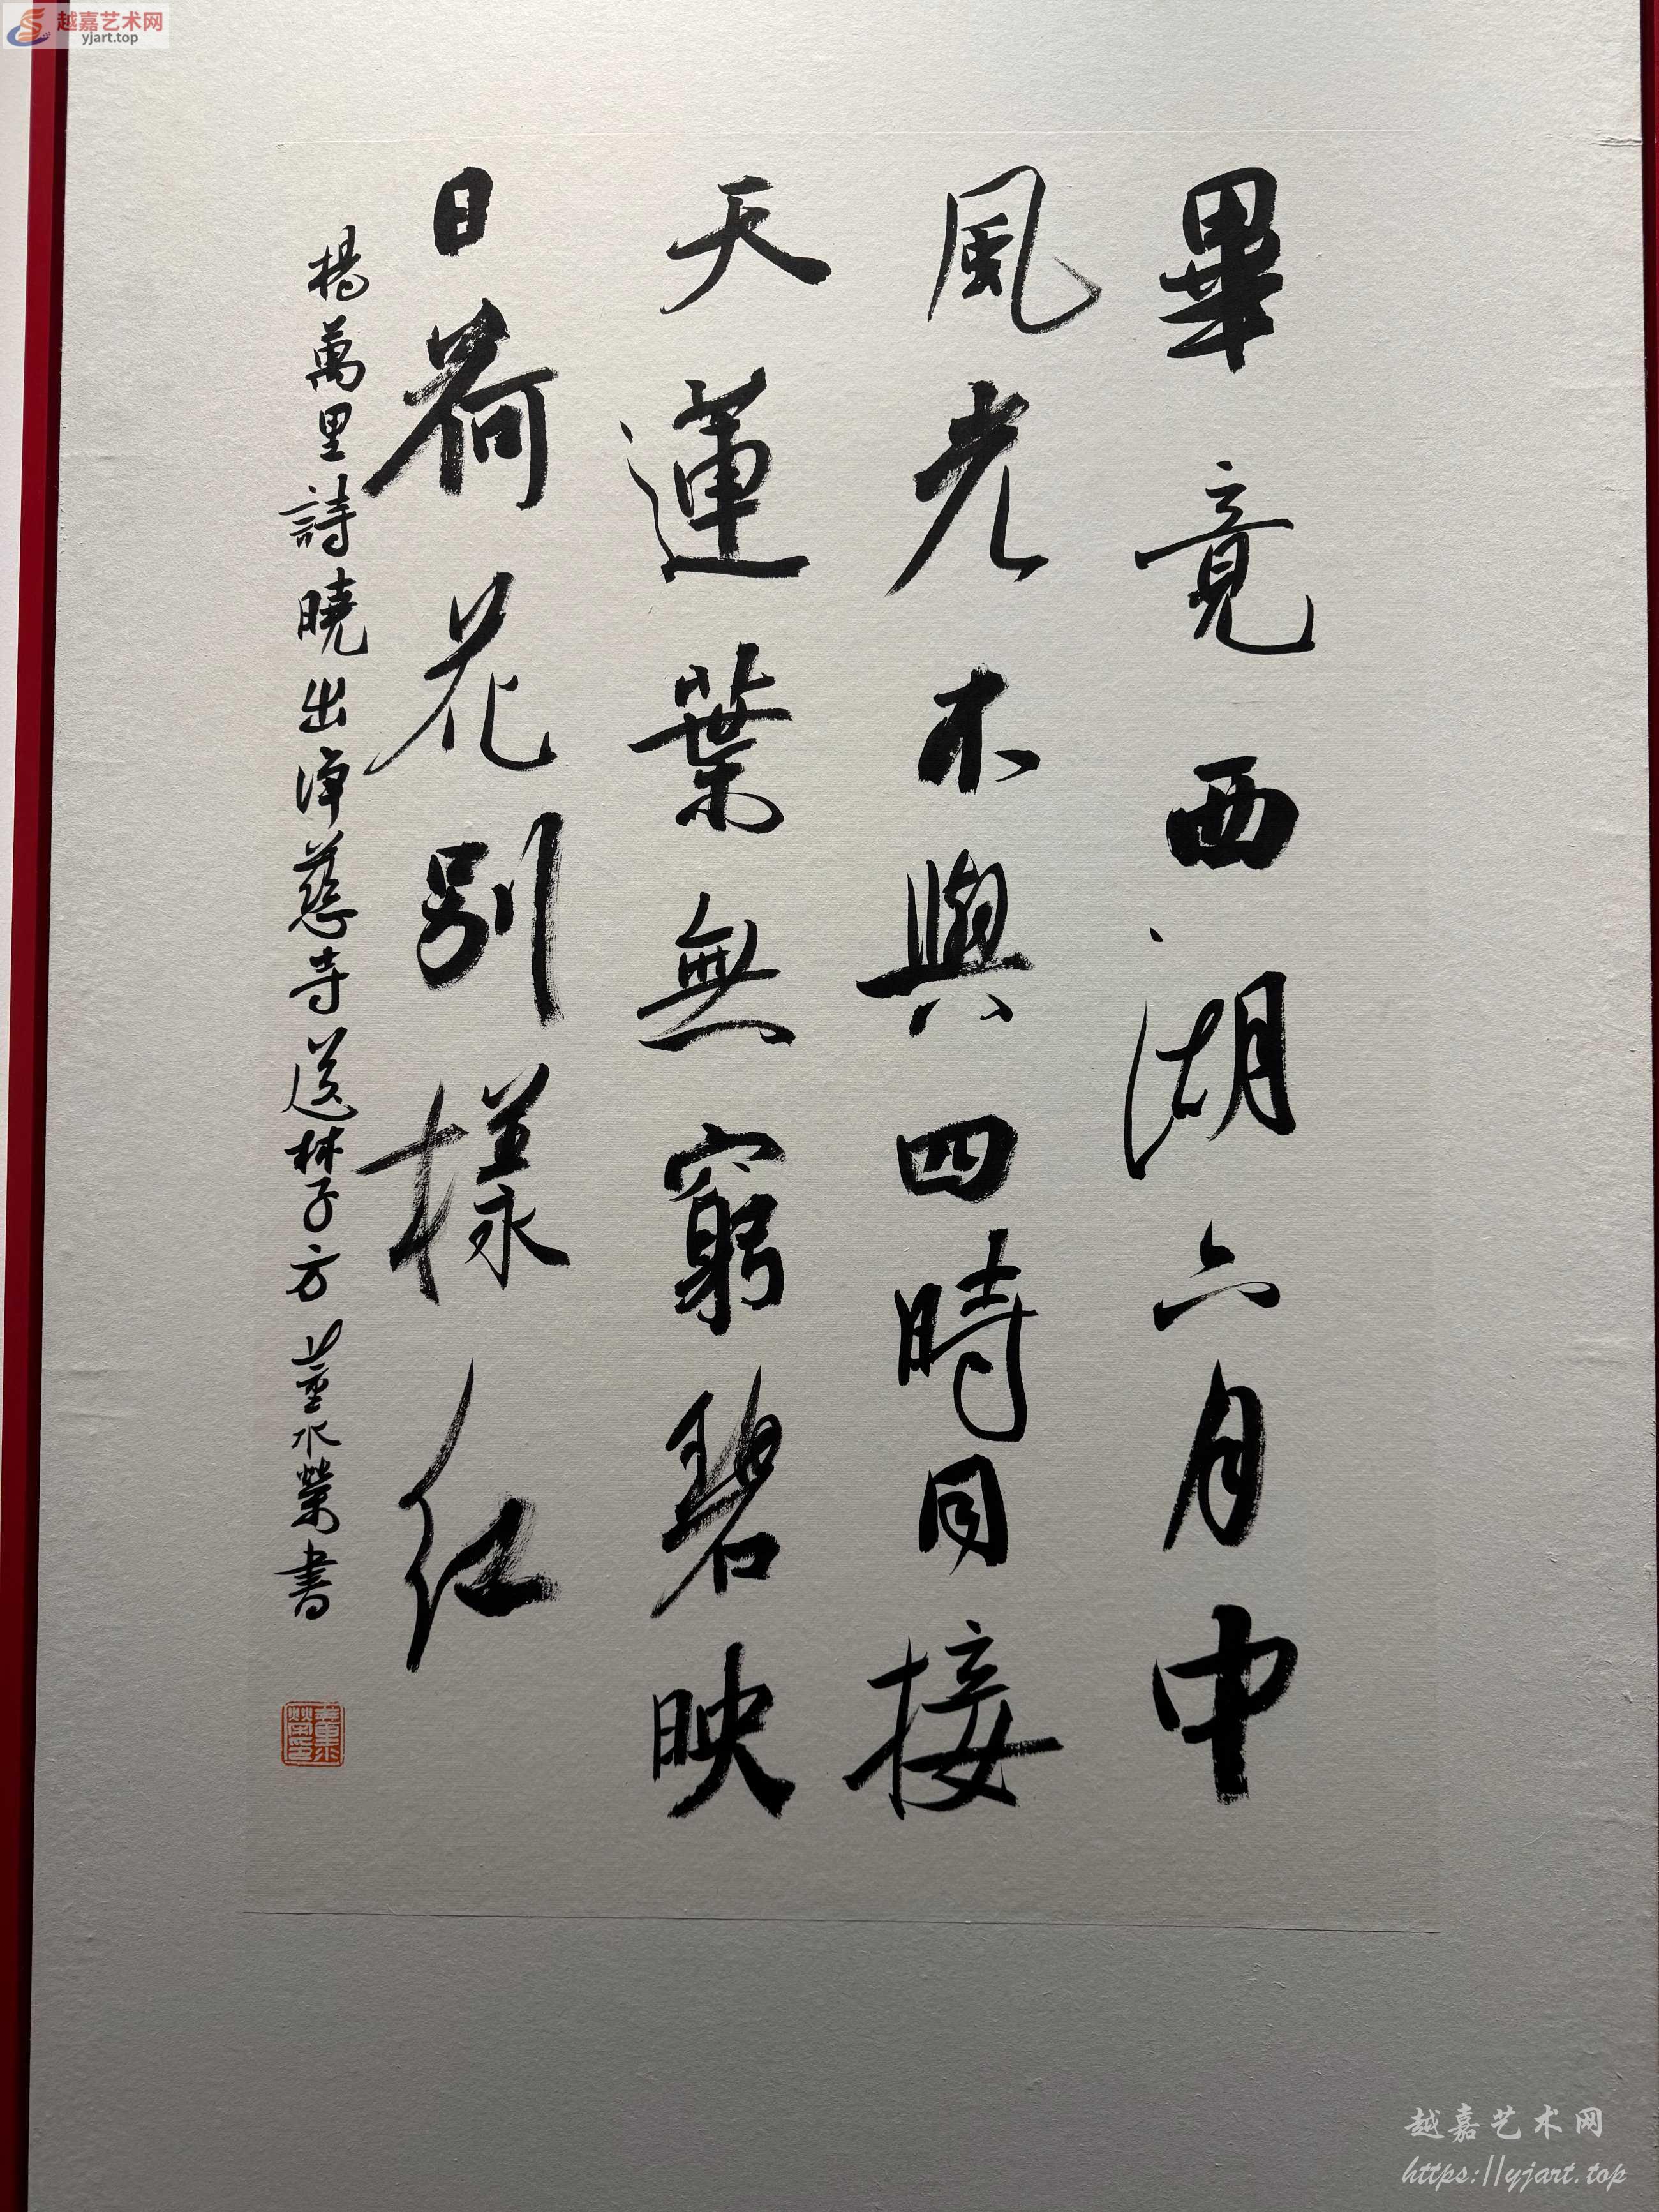 越嘉艺术网
yjart.top
畢竟西湖六月中
風光不與四時同接
天蓮葉無窮碧映
日荷花別樣紅
楊萬里詩曉出淨慈寺送林子方 董水榮書
越嘉艺术网
https://yjart.top